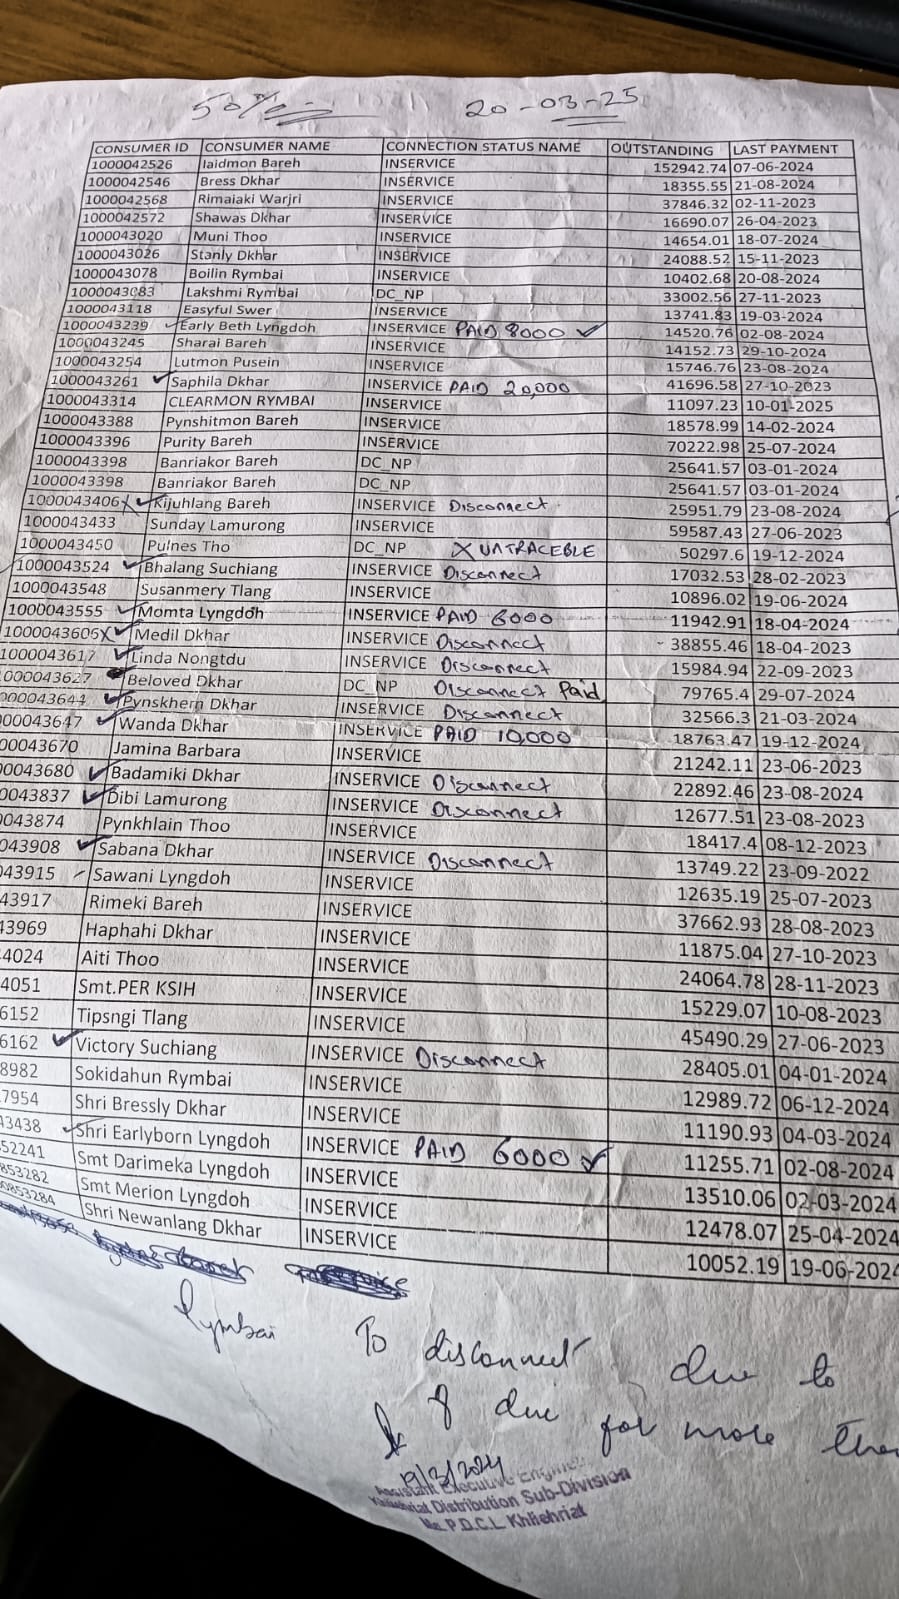 50%
20-03-25
CONSUMER ID CONSUMER NAME CONNECTION STATUS NAME OUTSTANDING LAST PAYMENT
1000042526 Iaidmon Bareh INSERVICE 152942.74 07-06-2024
1000042546 Bress Dkhar INSERVICE 18355.55 21-08-2024
1000042568 Rimaiaki Warjri INSERVICE 37846.32 02-11-2023
1000042572 Shawas Dkhar INSERVICE 16690.07 26-04-2023
1000043020 Muni Thoo INSERVICE 14654.01 18-07-2024
1000043026 Stanly Dkhar INSERVICE 24088.52 15-11-2023
1000043078 Boilin Rymbai INSERVICE 10402.68 20-08-2024
1000043083 Lakshmi Rymbai DC_NP 33002.56 27-11-2023
1000043118 Easyful Swer INSERVICE 13741.83 19-03-2024
1000043239 Early Beth Lyngdoh INSERVICE PAID 8000 ✓ 14520.76 02-08-2024
1000043245 Sharai Bareh INSERVICE 14152.73 29-10-2024
1000043254 Lutmon Pusein INSERVICE 15746.76 23-08-2024
1000043261 ✓ Saphila Dkhar INSERVICE PAID 20,000 41696.58 27-10-2023
1000043314 CLEARMON RYMBAI INSERVICE 11097.23 10-01-2025
1000043388 Pynshitmon Bareh INSERVICE 18578.99 14-02-2024
1000043396 Purity Bareh INSERVICE 70222.98 25-07-2024
1000043398 Banriakor Bareh DC_NP 25641.57 03-01-2024
1000043398 Banriakor Bareh DC_NP 25641.57 03-01-2024
1000043406 X ✓ Kijuhlang Bareh INSERVICE Disconnect 25951.79 23-08-2024
1000043433 Sunday Lamurong INSERVICE 59587.43 27-06-2023
1000043450 Pulnes Tho DC_NP X UNTRACEBLE 50297.6 19-12-2024
1000043524 ✓ Bhalang Suchiang INSERVICE Disconnect 17032.53 28-02-2023
1000043548 Susanmery Tlang INSERVICE 10896.02 19-06-2024
1000043555 ✓ Momta Lyngdoh INSERVICE PAID 6000 11942.91 18-04-2024
1000043606 X ✓ Medil Dkhar INSERVICE Disconnect 38855.46 18-04-2023
1000043617 ✓ Linda Nongtdu INSERVICE Disconnect 15984.94 22-09-2023
000043627 Beloved Dkhar DC_NP Disconnect Paid 79765.4 29-07-2024
000043644 ✓ Pynskhem Dkhar INSERVICE Disconnect 32566.3 21-03-2024
000043647 ✓ Wanda Dkhar INSERVICE PAID 10,000 18763.47 19-12-2024
00043670 Jamina Barbara INSERVICE 21242.11 23-06-2023
00043680 ✓ Badamiki Dkhar INSERVICE Disconnect 22892.46 23-08-2024
0043837 ✓ Dibi Lamurong INSERVICE Disconnect 12677.51 23-08-2023
0043874 Pynkhlain Thoo INSERVICE 18417.4 08-12-2023
043908 ✓ Sabana Dkhar INSERVICE Disconnect 13749.22 23-09-2022
43915 Sawani Lyngdoh INSERVICE 12635.19 25-07-2023
43917 Rimeki Bareh INSERVICE 37662.93 28-08-2023
3969 Haphahi Dkhar INSERVICE 11875.04 27-10-2023
4024 Aiti Thoo INSERVICE 24064.78 28-11-2023
4051 Smt.PER KSIH INSERVICE 15229.07 10-08-2023
6152 Tipsngi Tlang INSERVICE 45490.29 27-06-2023
6162 ✓ Victory Suchiang INSERVICE Disconnect 28405.01 04-01-2024
8982 Sokidahun Rymbai INSERVICE 12989.72 06-12-2024
7954 Shri Bressly Dkhar INSERVICE 11190.93 04-03-2024
3438 ✓ Shri Earlyborn Lyngdoh INSERVICE PAID 6000 ✓ 11255.71 02-08-2024
52241 Smt Darimeka Lyngdoh INSERVICE 13510.06 02-03-2024
853282 Smt Merion Lyngdoh INSERVICE 12478.07 25-04-2024
0853284 Shri Newanlang Dkhar INSERVICE 10052.19 19-06-2024
Rymbai To disconnect due to
due for more than
19/3/2024
Assistant Executive Engineer
Khliehriat Distribution Sub-Division
Me.P.D.C.L Khliehriat